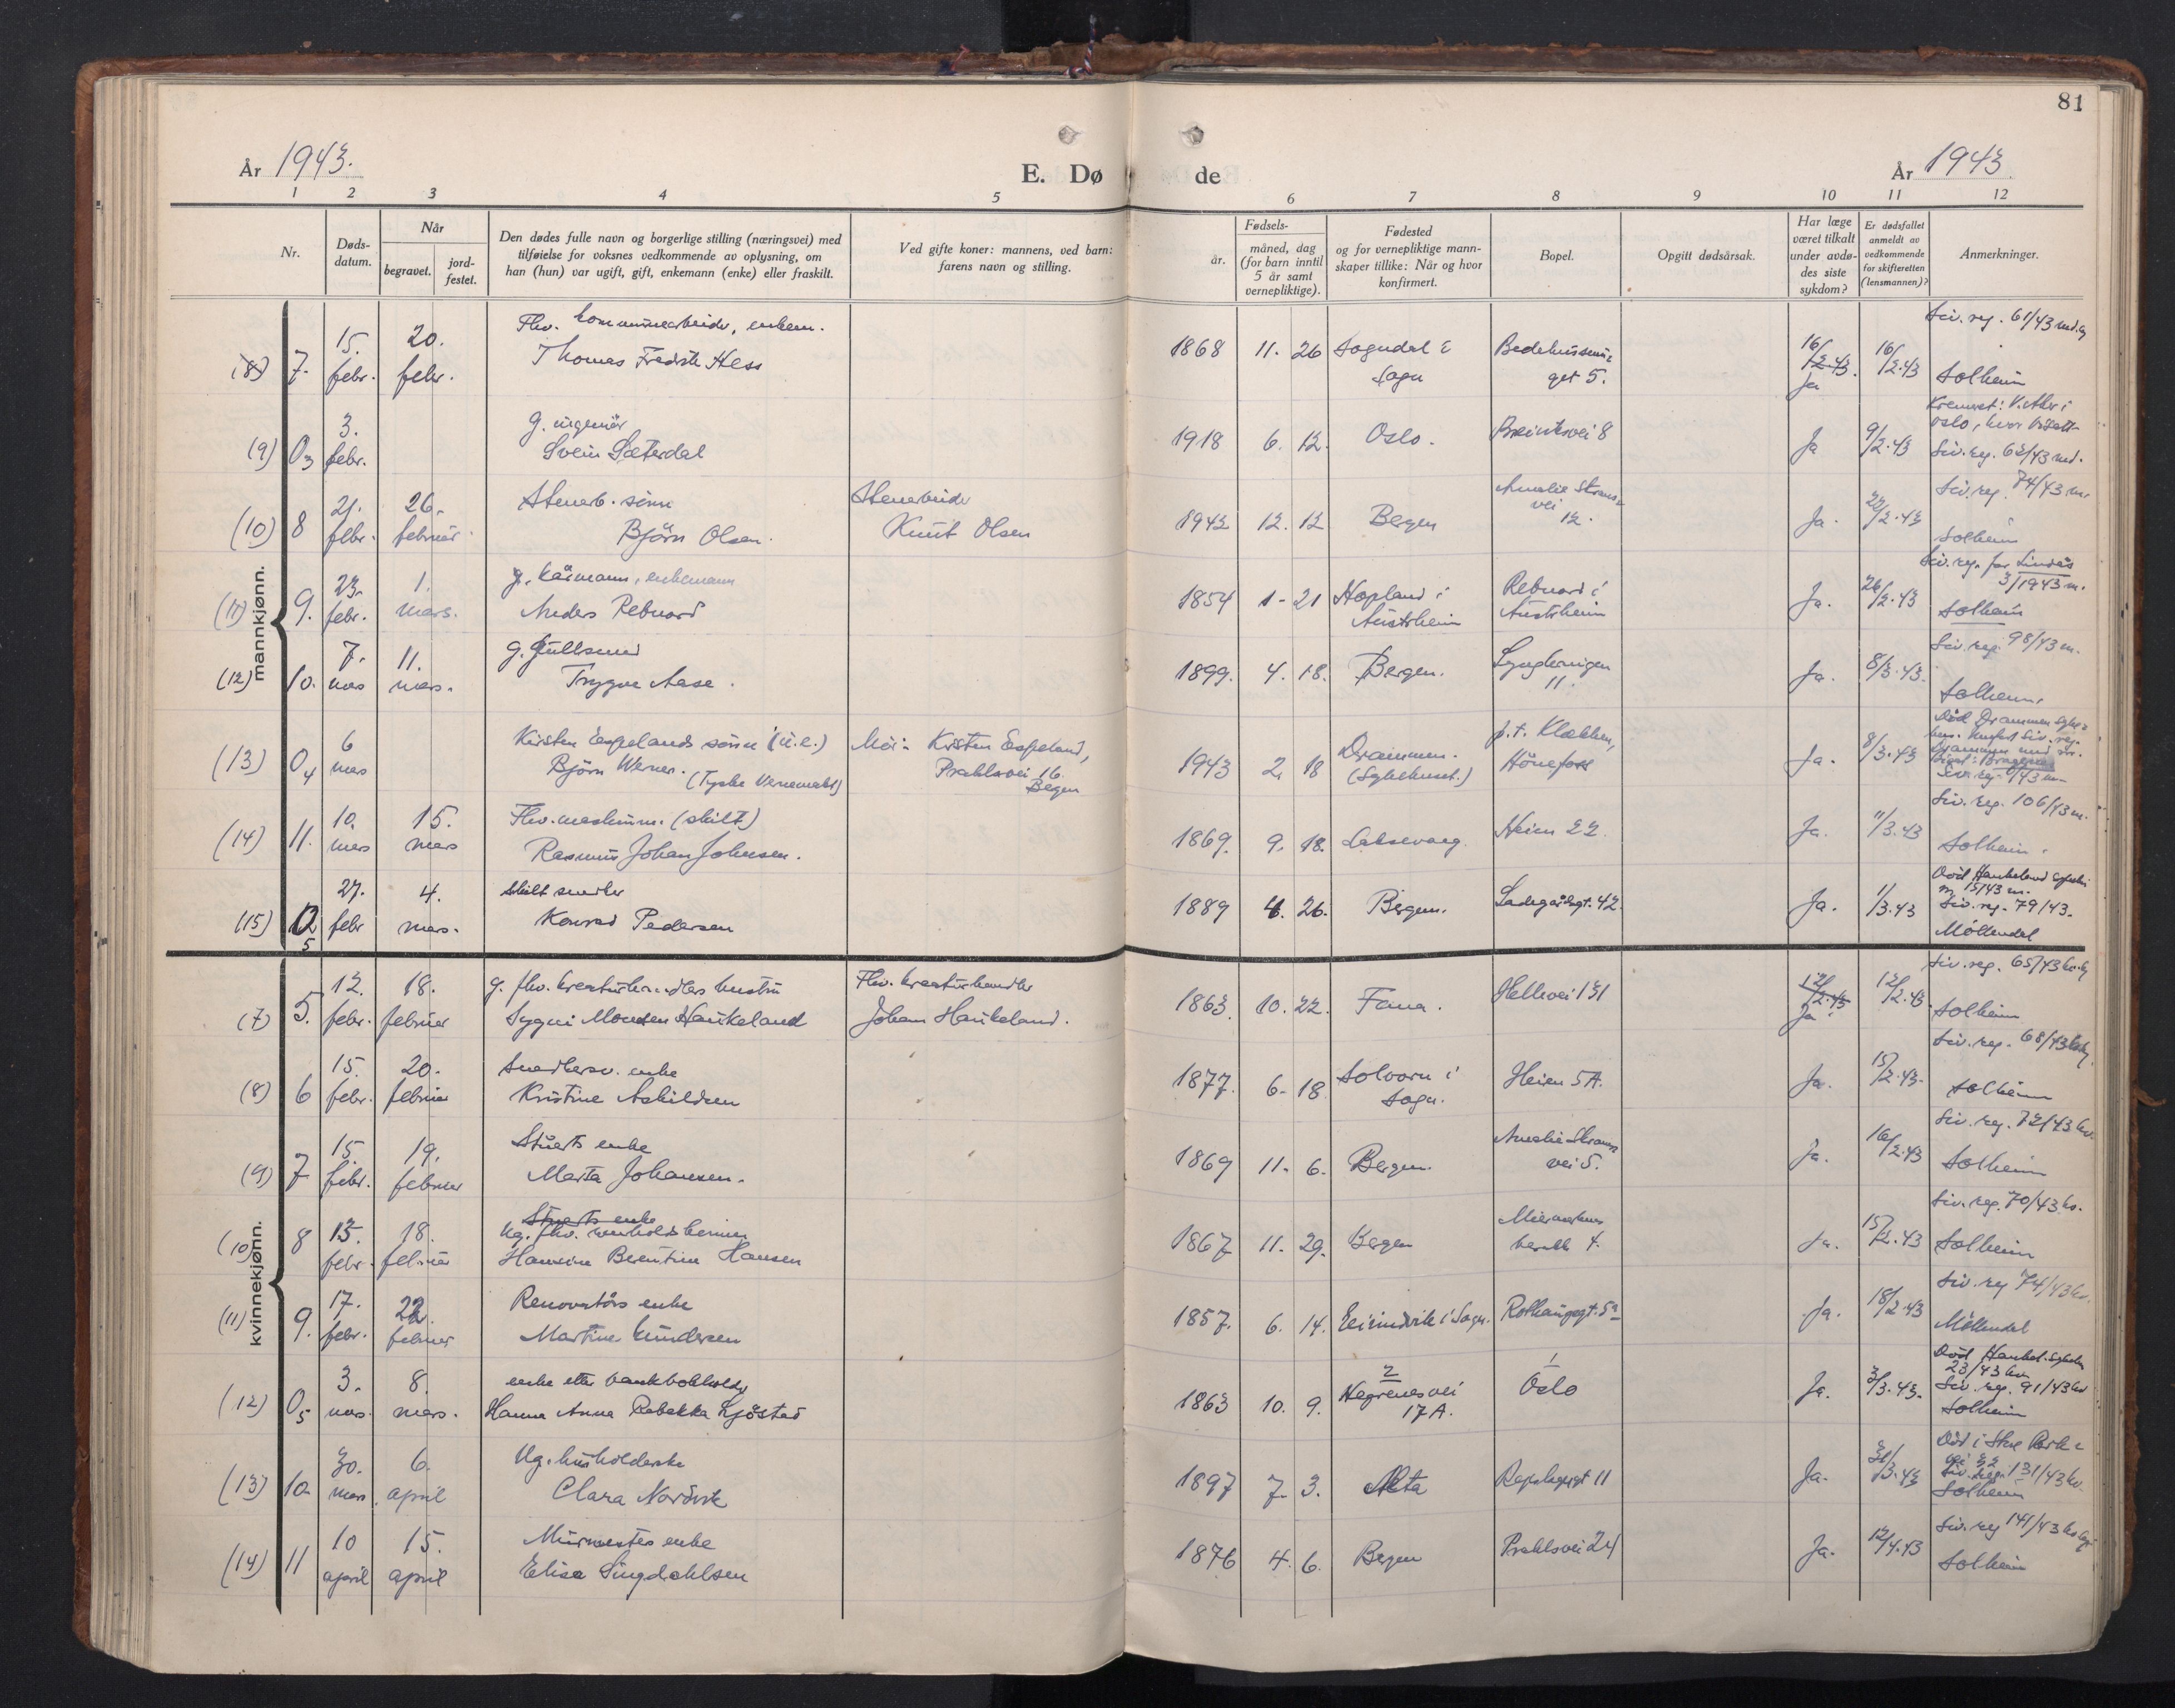 81
År 1943.
E. Dø de
År 1943
1 2 3 4 5 6 7 8 9 10 11 12
Nr.
Døds-
datum.
Når
begravet.
jord-
festet.
Den dødes fulle navn og borgerlige stilling (næringsvei) med
tilføielse for voksnes vedkommende av oplysning, om
han (hun) var ugift, gift, enkemann (enke) eller fraskilt.
Ved gifte koner: mannens, ved barn:
farens navn og stilling.
Fødsels-
år.
måned, dag
(for barn inntil
5 år samt
vernepliktige).
Fødested
og for vernepliktige mann-
skaper tillike: Når og hvor
konfirmert.
Bopel.
Opgitt dødsårsak.
Har læge
været tilkalt
under avdø-
des siste
sykdom?
Er dødsfallet
anmeldt av
vedkommende
for skifteretten
(lensmannen)?
Anmerkninger.
mannkjønn.
(8) 7. 15. febr. 20. febr.
Fhv. kommunearbeider, enkem.
Thomas Fredrik Hess
1868 11. 26 Sogndal i
Sogn
get 5.
16/2.43 Ja 16/2.43
Siv. reg. 61/43
Solheim
(9) 0 3 3. febr.
g. ingeniör
Svein Sæterdal
1918 6. 12. Oslo.
Ja 9/2.43
Siv. reg. 62/43
(10) 8 21. febr. 26. februar
Stenarb. sönn
Björn Olsen.
Stenarbeider
Knut Olsen
1942 12. 12 Bergen
vei
12.
Ja. 22/2.43
Siv. reg. 74/43 m.
Solheim
(11) 9. 23. febr. 1. mars.
g. kårmann, enkemann
Anders Rebnord
1854 1- 21 Hopland i
Austrheim
Rebnord i
Austrheim
Ja. 26/2.43
Siv. reg. for Lindås
3/1943 m.
Solheim
(12) 10. 7. mars 11. mars.
g. Gullsmed
Trygve Aase.
1899. 4. 18. Bergen.
Lyngbœringen
11.
Ja. 8/3.43.
Siv. reg. 98/43 m.
Solheim.
(13) 0 4 6 mars
Kirsten Espelands sönn (u.e.)
Björn Werner. (Tyske Vernemakt)
Mor: Kirsten Espeland,
Prahlsvei 16.
Bergen
1943 2. 18 Drammen.
(Sykehuset.)
p.t. Klækken,
Hönefoss
Ja. 8/3.43
(14) 11. 10. mars 15. mars
Fhv. maskinm. (skilt)
Rasmus Johan Johnsen.
1869. 9. 18. Laksevaag.
Heien 22.
Ja. 11/3.43
Siv. reg. 106/43 m.
Solheim.
(15) 0 5 27. febr 4. mars.
skilt snedker
Konrad Pedersen
1889 4. 26. Bergen.
Ladegårdsgt. 42.
Ja. 1/3.43
Död Haukeland
15/43 m.
Siv. reg. 79/43.
Möllendal
kvinnekjønn.
(7) 5. 12. febr. 18. februar
g. fhv. kreaturhandlers hustru
Sygni Monsen Haukeland
Fhv. kreaturhandler
Johan Haukeland.
1863. 10. 22. Fana.
Hellevei 131
12/2.43 Ja 12/2.43.
Siv. reg. 65/43
Solheim
(8) 6 15. febr. 20. februar
Snedkersv. enke
Kristine Askildsen
1877. 6- 18 Solvorn i
Sogn.
Heien 5A.
Ja. 15/2.43.
Siv. reg. 68/43
Solheim
(9) 7 15. febr. 19. februar
Stuerts enke
Marta Johansen.
1869 11- 6. Bergen.
vei 5.
Ja. 16/2.43
Siv. reg. 72/43 kv.
Solheim
(10) 8 13. febr. 18. februar
Stuerts enke
Ug. fhv.
Hansine Berentine Hansen
1867 11. 29. Bergen
4.
Ja. 15/2.43
Siv. reg. 70/43 kv.
Solheim
(11) 9. 17. febr. 22. februar
Renovatörs enke
Martine Gundersen
1857. 6. 14. Eivindvik i Sogn.
Rothaugsgt. 5
Ja. 18/2.43
Siv. reg 74/43 kv.
Möllendal
(12) 0 5 3. mars. 8. mars.
enke etter bankbokholder
Hanna Anna Rebekka Sjöstad
1863 10. 9.
Hegrenesvei
17A.
Oslo
Ja. 3/3.43.
23/43 kv
Siv. reg. 91/43 kv
Solheim
(13) 10 30. mars 6. april
Ug. husholderske
Clara Nordvik
1897 7- 3. Alta
11
Ja. 31/3.43
Siv. reg. 131/43 kv.
Solheim
(14) 11 10 april 15. april
Murmesters enke
Elise Singdahlsen
1876 4. 6. Bergen
Prahlsvei 24
Ja. 12/4.43
Siv. reg 141/43
Solheim